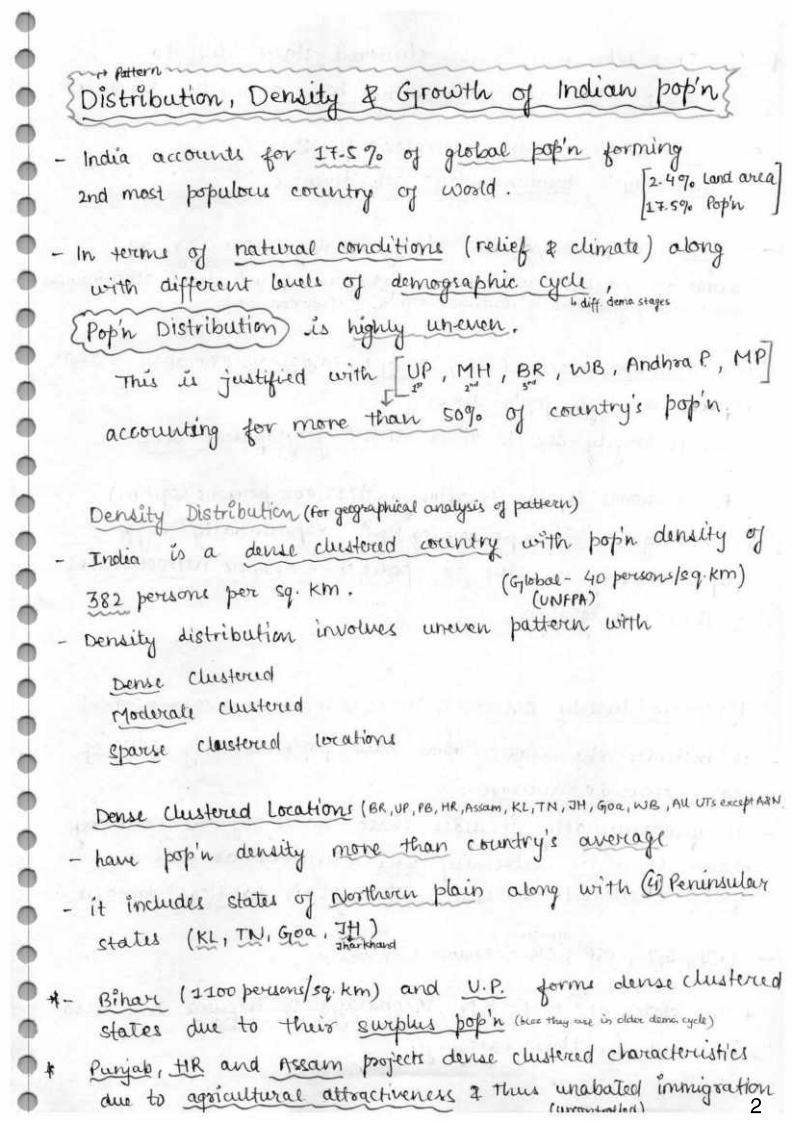 ↱ Pattern
Distribution, Density & Growth of Indian pop'n
- India accounts for 17.5% of global pop'n forming
2nd most populous country of world.
[2.4% Land area
17.5% Pop'n]
- In terms of natural conditions (relief & climate) along
with different levels of demographic cycle,
↳ diff. demo stages
Pop'n Distribution is highly uneven.
This is justified with [UP, MH, BR, WB, Andhra P, MP]
1st 2nd 3rd
accounting for more than 50% of country's pop'n.
Density Distribution (for geographical analysis of pattern)
- India is a dense clustered country with pop'n density of
382 persons per sq. km. (Global - 40 persons/sq.km)
(UNFPA)
- Density distribution involves uneven pattern with
Dense clustered
Moderate clustered
Sparse clustered locations
Dense Clustered Locations (BR, UP, PB, HR, Assam, KL, TN, JH, Goa, WB, All UTs except A&N
- have pop'n density more than country's average
- it includes states of Northern plain along with (4) Peninsular
states (KL, TN, Goa, JH)
Jharkhand
*- Bihar (1100 persons/sq.km) and U.P. forms dense clustered
states due to their surplus pop'n (bcoz they are in older demo cycle)
* Punjab, HR and Assam projects dense clustered characteristics
due to agricultural attractiveness & thus unabated immigration
(uncontrolled)
2